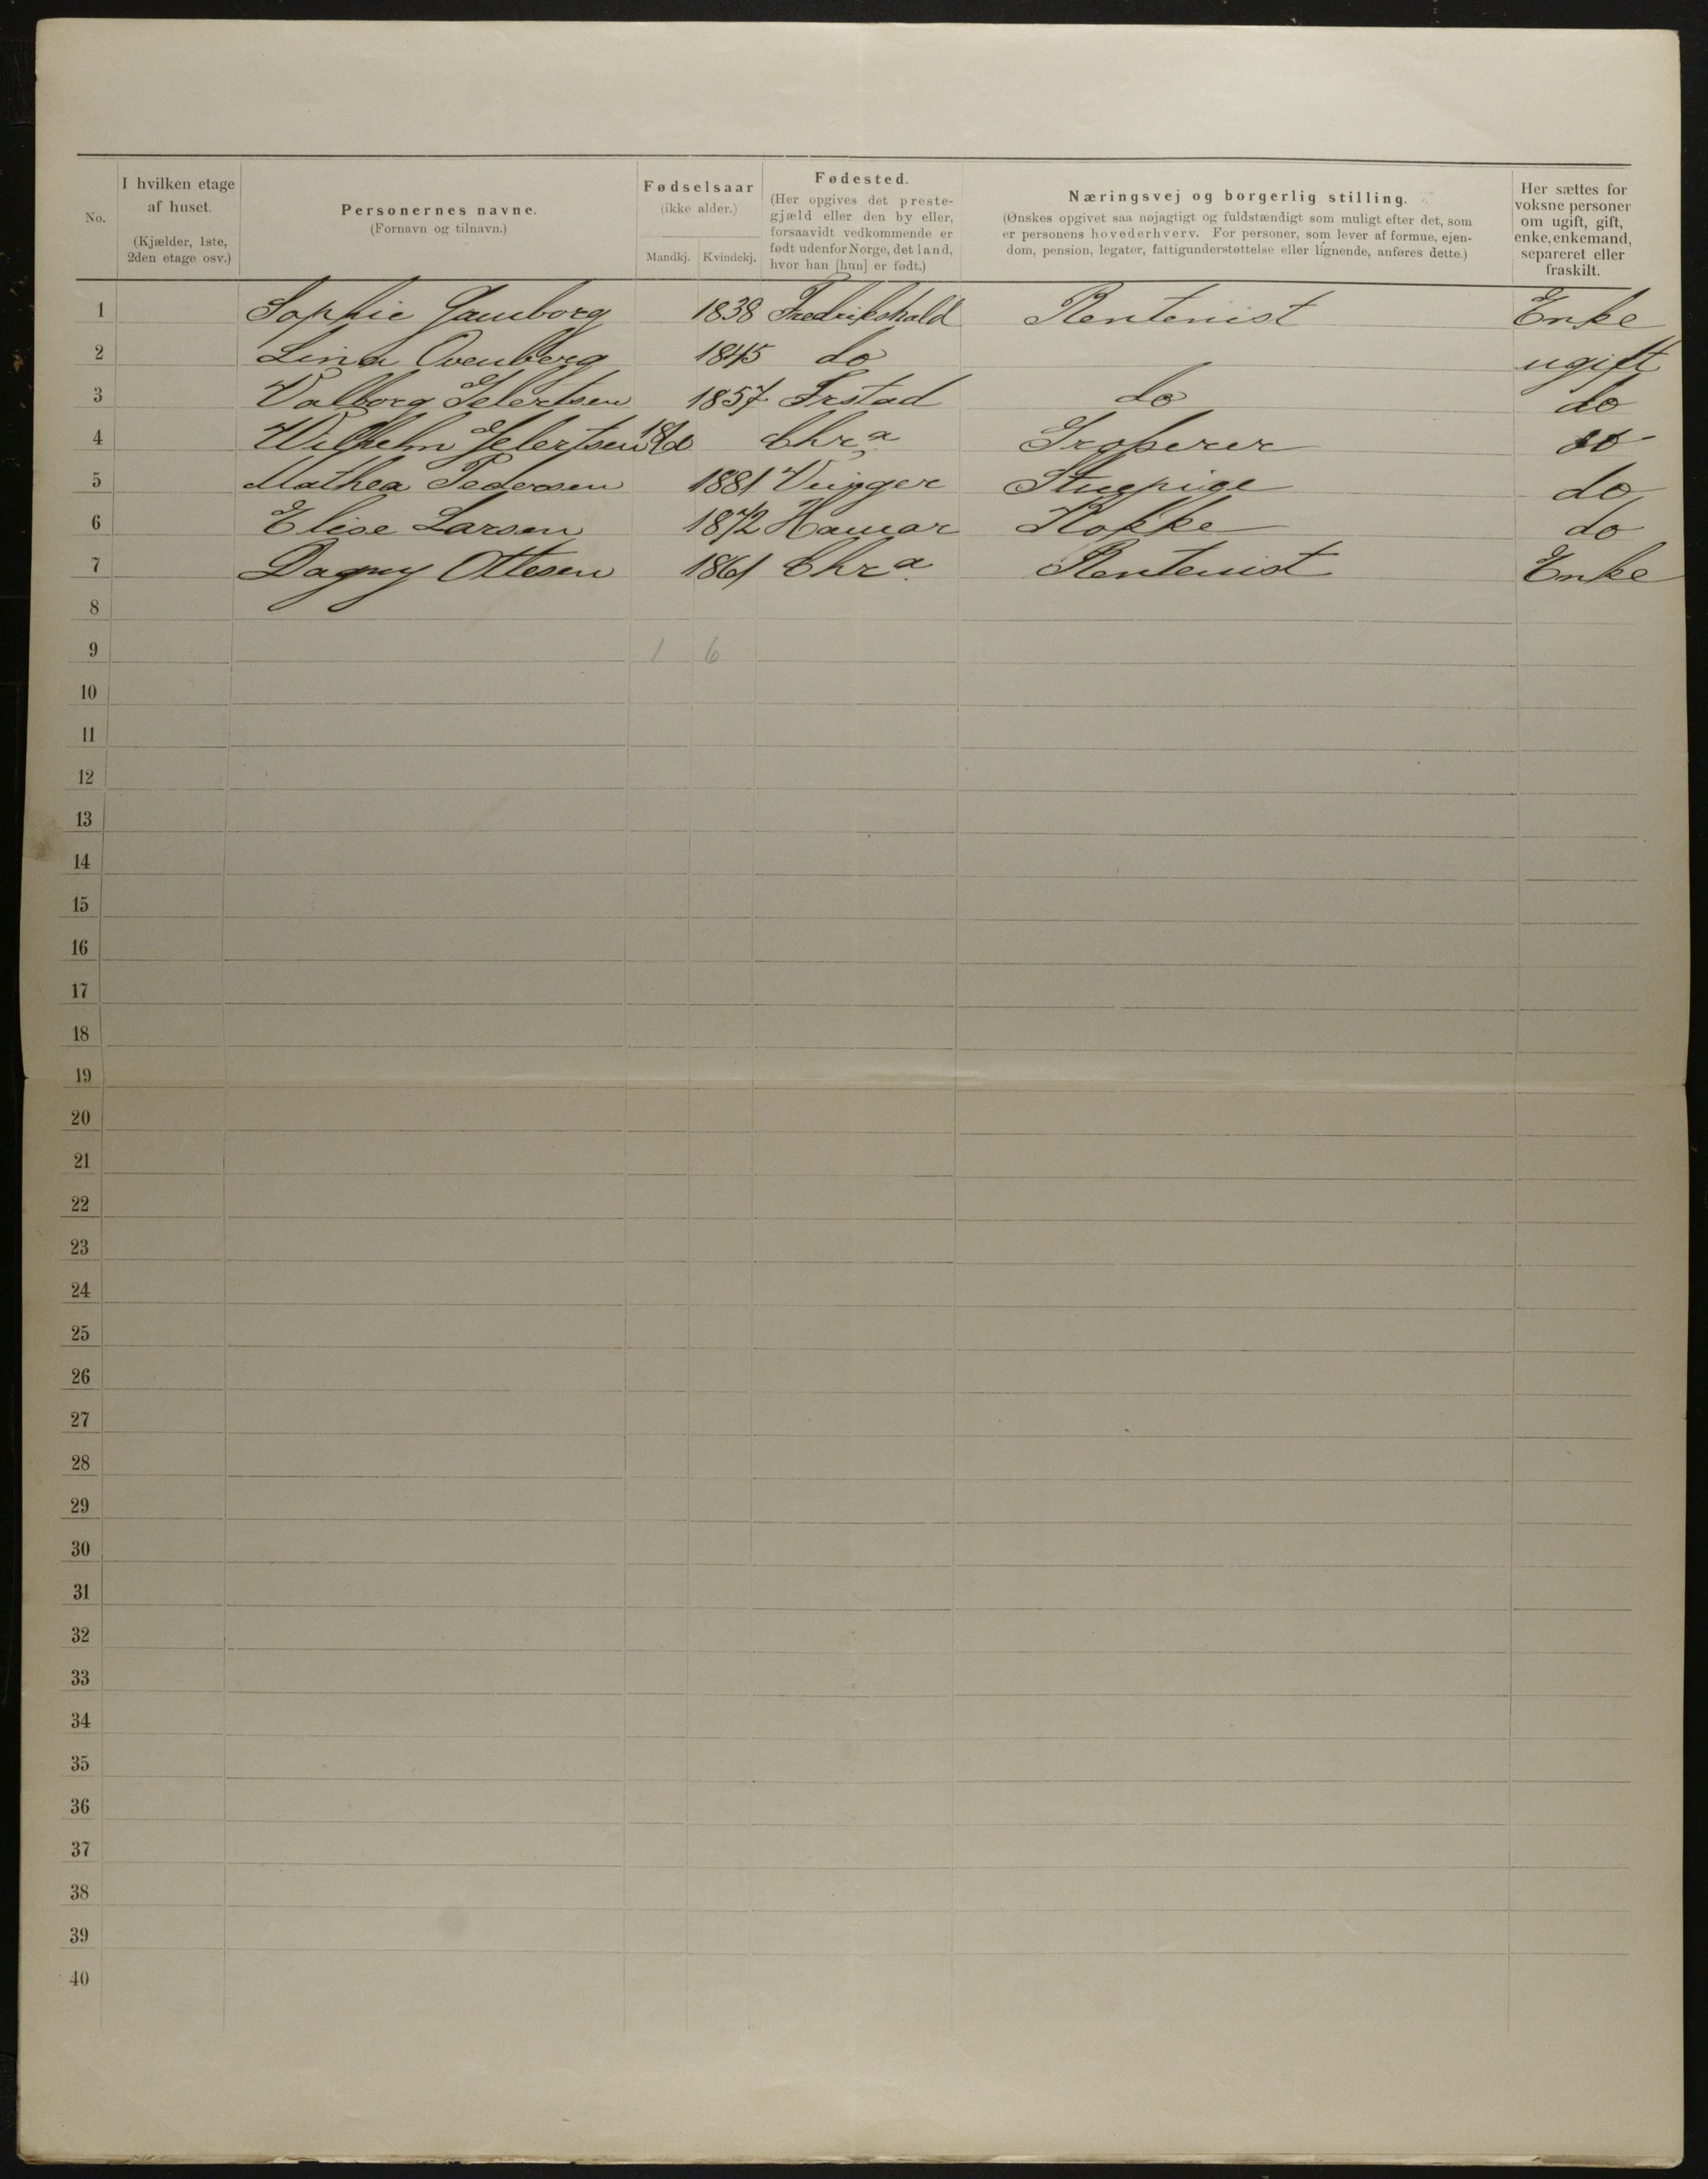 No.
I hvilken etage af huset.
(Kjælder, 1ste, 2den etage osv.)
Personernes navne.
(Fornavn og tilnavn.)
Fødselsaar
(ikke alder.)
Mandkj. Kvindekj.
Fødested.
(Her opgives det prestegjæld eller den by eller, forsaavidt vedkommende er født udenfor Norge, det land, hvor han [hun] er født.)
Næringsvej og borgerlig stilling.
(Ønskes opgivet saa nøjagtigt og fuldstændigt som muligt efter det, som er personens hovederhverv. For personer, som lever af formue, ejendom, pension, legater, fattigunderstøttelse eller lignende, anføres dette.)
Her sættes for voksne personer om ugift, gift, enke, enkemand, separeret eller fraskilt.
1 Sophie Gamborg 1838 Fredrikshald Rentenist Enke
2 Lina 1845 do ugift
3 Valborg 1857 Frstad do do
4 Wilhelm Chra. Groserer do
5 Mathea Pedersen 1881 Vinger Stuepige do
6 Elise Larsen 1872 Hamar Kokke do
7 Dagny Ottesen 1861 Chra. Rentenist Enke
8
9 1 6
10
11
12
13
14
15
16
17
18
19
20
21
22
23
24
25
26
27
28
29
30
31
32
33
34
35
36
37
38
39
40